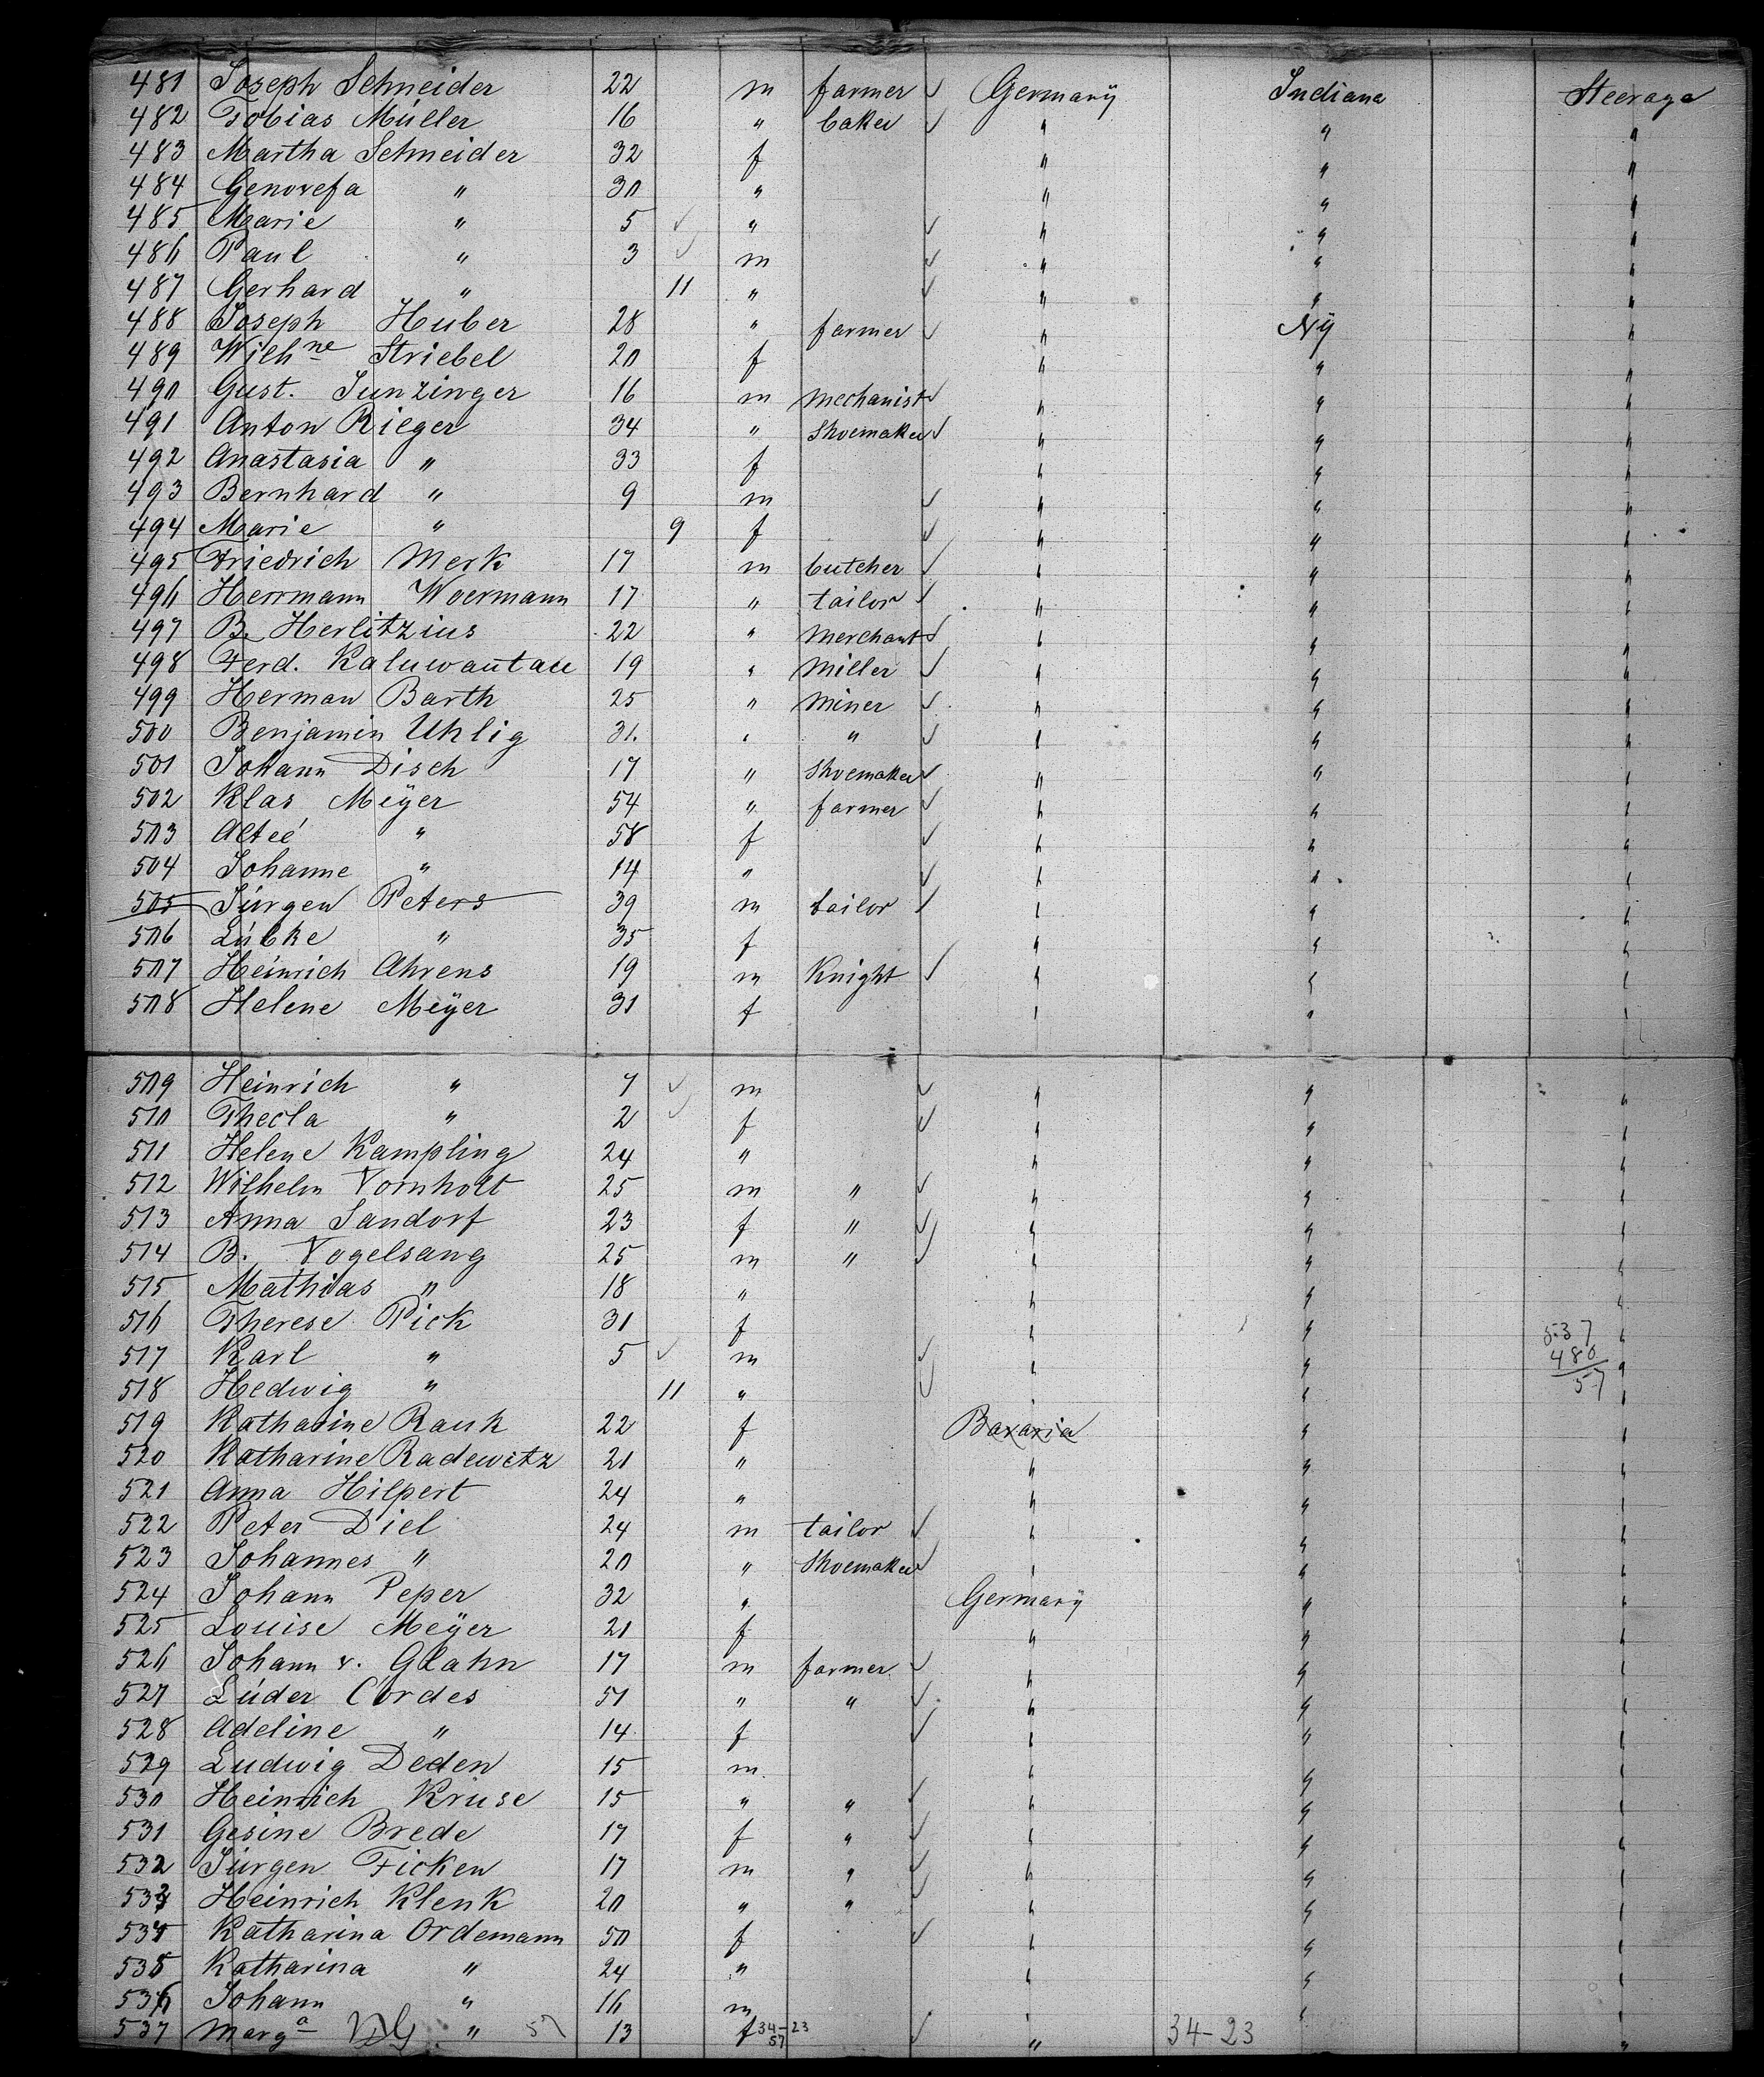 481 Joseph Schneider 22 m farmer ✓ Germany Indiana Steerage
482 Tobias Müller 16 " baker ✓ " " "
483 Martha Schneider 32 f " " "
484 Genovefa " 30 " " " "
485 Marie " 5 ✓ " ✓ " " "
486 Paul " 3 ✓ m ✓ " " "
487 Gerhard " 11 " ✓ " " "
488 Joseph Huber 28 " farmer ✓ " NY "
489 Wilhne Striebel 20 f " " "
490 Gust. Junzinger 16 m mechanist ✓ " " "
491 Anton Rieger 34 " Shoemaker ✓ " " "
492 Anastasia " 33 f " " "
493 Bernhard " 9 m ✓ " " "
494 Marie " 9 f ✓ " " "
495 Friedrich Merk 17 m butcher ✓ " " "
496 Herrmann Woermann 17 " tailor ✓ " " "
497 B. Herlitzius 22 " Merchant ✓ " " "
498 Ferd. 19 " Miller ✓ " " "
499 Herman Barth 25 " Miner ✓ " " "
500 Benjamin Uhlig 31. " " ✓ " " "
501 Johann Disch 17 " Shoemaker ✓ " " "
502 Klas Meÿer 54 " farmer ✓ " " "
503 " 58 f ✓ " " "
504 Johanne " 14 " ✓ " " "
505 Jürgen Peters 39 m tailor ✓ " " "
506 Lübke " 35 f " " "
507 Heinrich Ahrens 19 m Knight ✓ " " "
508 Helene Meÿer 31 f " " "
509 Heinrich " 7 ✓ m ✓ " " "
510 Thecla " 2 ✓ f ✓ " " "
511 Helene Kampling 24 " " " "
512 Wilhelm Vornholt 25 m " ✓ " " "
513 Anna Sandorf 23 f " ✓ " " "
514 B. Vogelsang 25 m " ✓ " " "
515 Mathias " 18 " " " "
516 Therese Pick 31 f " " "
517 Karl " 5 ✓ m ✓ " " "
537
480
57
518 Hedwig " 11 " ✓ " " "
519 Katharine Rauh 22 f Bavaria " "
520 Katharine Radewitz 21 " " " "
521 Anna Hilpert 24 " " " "
522 Peter Diel 24 m tailor ✓ " " "
523 Johannes " 20 " Shoemaker ✓ " " "
524 Johann Peper 32 " Germany " "
525 Louise Meÿer 21 f " " "
526 Johann v. Glahn 17 m farmer ✓ " " "
527 Lüder Cordes 51 " " ✓ " " "
528 Adeline " 14 f ✓ " " "
529 Ludwig Deden 15 m " " "
530 Heinrich Kruse 15 " " ✓ " " "
531 Gesine Brede 17 f " ✓ " " "
532 Jürgen Ficken 17 m " ✓ " " "
533 Heinrich Klenk 20 " " ✓ " " "
534 Katharina Ordemann 50 f ✓ " " "
535 Katharina " 24 " " " "
536 Johann " 16 m " " "
537 Marga " 57 13 f 34-23 57 ✓ " 34-23 "